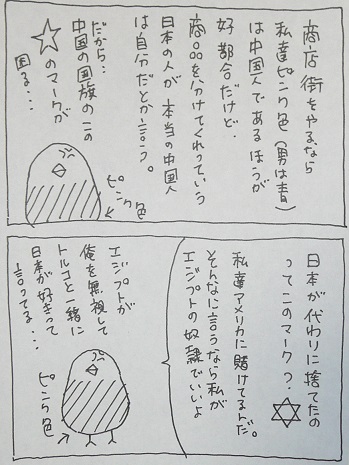 商店街をやるなら
私達ピンク色(男は青)
は中国人であるほうが
好都合だけど…
商品を分けてくれっていう
日本の人が本当の中国人
は自分だとか言う。
だから…
中国の国旗の一つの
☆のマークが
困る…
ピンク色
日本が代わりに捨てたの
ってこのマーク?✡
私達アメリカに賭けてるんだ。
そんなに言うなら私が
エジプトの奴隷でいいよ
エジプトが
俺を無視して
トルコと一緒に
日本が好きって
言ってる…
ピンク色